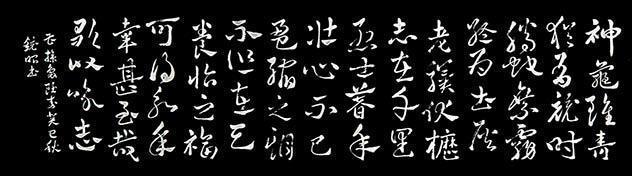 神龜雖壽
猶有竟時
騰蛇乘霧
終為土灰
老驥伏櫪
志在千里
烈士暮年
壯心不已
盈縮之期
不但在天
養怡之福
可得永年
幸甚至哉
歌以詠志
龜雖壽癸巳秋
書